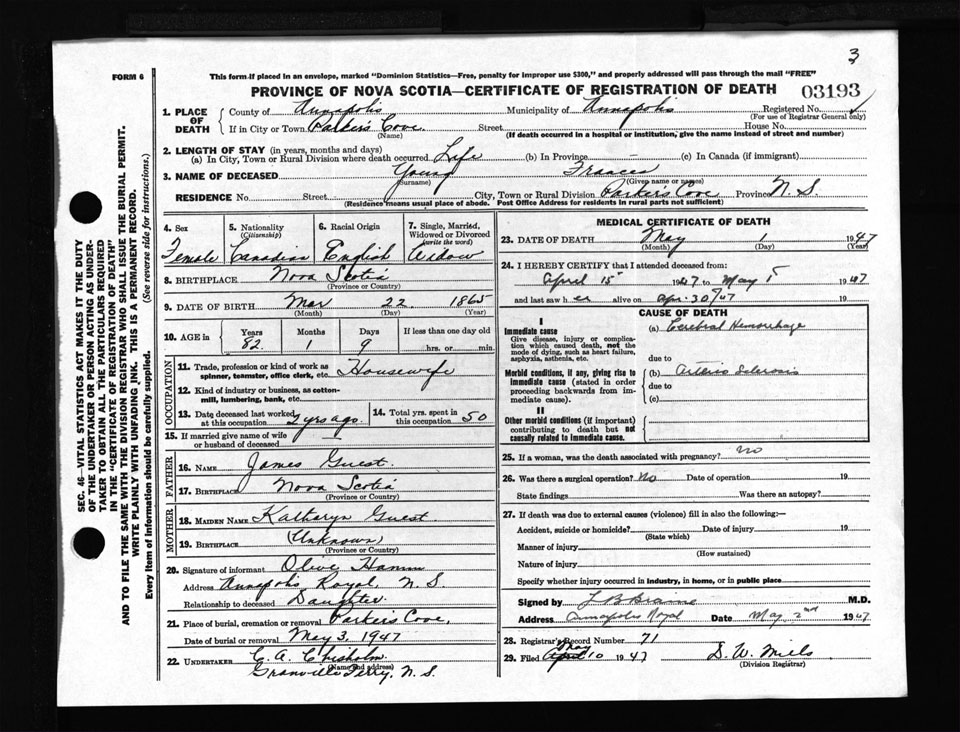 3
FORM 6
This form if placed in an envelope, marked "Dominion Statistics—Free, penalty for improper use $300," and properly addressed will pass through the mail "FREE"
PROVINCE OF NOVA SCOTIA—CERTIFICATE OF REGISTRATION OF DEATH 03193
1. PLACE OF DEATH
County of Annapolis Municipality of Annapolis Registered No.
(For use of Registrar General only)
If in City or Town Parker's Cove Street House No.
(Name) (If death occurred in a hospital or institution, give the name instead of street and number)
2. LENGTH OF STAY (in years, months and days)
(a) In City, Town or Rural Division where death occurred Life (b) In Province — (c) In Canada (if immigrant)
3. NAME OF DECEASED Young Frances
(Surname) (Given name or names)
RESIDENCE No. Street City, Town or Rural Division Parker's Cove Province N. S.
(Residence means usual place of abode. Post Office Address for residents in rural parts not sufficient)
4. Sex
Female
5. Nationality
(Citizenship)
Canadian
6. Racial Origin
English
7. Single, Married, Widowed or Divorced
(write the word)
Widow
8. BIRTHPLACE Nova Scotia
(Province or Country)
9. DATE OF BIRTH Mar 22 1865
(Month) (Day) (Year)
10. AGE in
Years Months Days If less than one day old
82 1 9 hrs. or min.
OCCUPATION
11. Trade, profession or kind of work as spinner, teamster, office clerk, etc. Housewife
12. Kind of industry or business, as cotton-mill, lumbering, bank, etc.
13. Date deceased last worked at this occupation 2 yrs ago
14. Total yrs. spent in this occupation 50
15. If married give name of wife or husband of deceased
FATHER
16. NAME James Guest
17. BIRTHPLACE Nova Scotia
(Province or Country)
MOTHER
18. MAIDEN NAME Katharyn Guest
19. BIRTHPLACE (Unknown)
(Province or Country)
20. Signature of informant Olive Hamm
Address Annapolis Royal, N. S.
Relationship to deceased Daughter
21. Place of burial, cremation or removal Parker's Cove,
Date of burial or removal May 3, 1947
22. UNDERTAKER C. A. Chisholm
(Name and address)
Granville Ferry, N. S.
MEDICAL CERTIFICATE OF DEATH
23. DATE OF DEATH May 1 1947
(Month) (Day) (Year)
24. I HEREBY CERTIFY that I attended deceased from:
April 15 1947 to May 1 1947
and last saw her alive on Apr. 30/47 19
CAUSE OF DEATH
I
Immediate cause
Give disease, injury or complication which caused death, not the mode of dying, such as heart failure, asphyxia, asthenia, etc.
(a) Cerebral Hemorrhage
due to
Morbid conditions, if any, giving rise to immediate cause (stated in order proceeding backwards from immediate cause).
(b) Arterio Sclerosis
due to
(c)
II
Other morbid conditions (if important) contributing to death but not causally related to immediate cause.
25. If a woman, was the death associated with pregnancy? No
26. Was there a surgical operation? No Date of operation 19
State findings Was there an autopsy?
27. If death was due to external causes (violence) fill in also the following:—
Accident, suicide or homicide? Date of injury 19
(State which)
Manner of injury
(How sustained)
Nature of injury
Specify whether injury occurred in industry, in home, or in public place
Signed by L B Braine M.D.
Address Annapolis Royal Date May 2nd 1947
28. Registrar's Record Number 71
29. Filed April May 10 1947 D. W. Mills
(Division Registrar)
SEC. 46—VITAL STATISTICS ACT MAKES IT THE DUTY
OF THE UNDERTAKER OR PERSON ACTING AS UNDER-
TAKER TO OBTAIN ALL THE PARTICULARS REQUIRED
IN THE "CERTIFICATE OF REGISTRATION OF DEATH"
AND TO FILE THE SAME WITH THE DIVISION REGISTRAR WHO SHALL ISSUE THE BURIAL PERMIT.
WRITE PLAINLY WITH UNFADING INK. THIS IS A PERMANENT RECORD.
Every item of information should be carefully supplied. (See reverse side for instructions.)